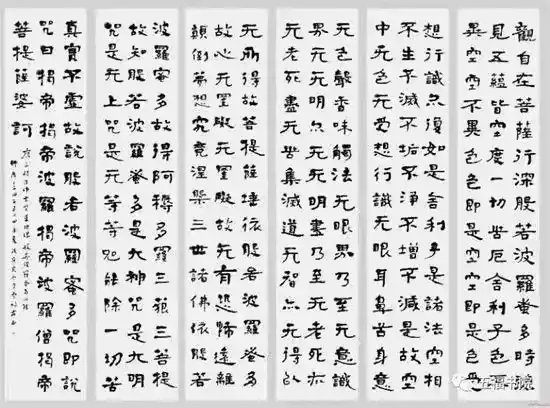 觀自在菩薩行深般若波羅蜜多時照
見五蘊皆空度一切苦厄舍利子色不
異空空不異色色即是空空即是色受
想行識亦復如是舍利子是諸法空相
不生不滅不垢不淨不增不減是故空
中无色无受想行識无眼耳鼻舌身意
无色聲香味觸法无眼界乃至无意識
界无无明亦无无明盡乃至无老死亦
无老死盡无苦集滅道无智亦无得以
无所得故菩提薩埵依般若波羅蜜多
故心无罣礙无罣礙故无有恐怖遠離
顛倒夢想究竟涅槃三世諸佛依般若
波羅蜜多故得阿耨多羅三藐三菩提
故知般若波羅蜜多是大神咒是大明
咒是无上咒是无等等咒能除一切苦
真實不虛故說般若波羅蜜多咒即說
咒曰揭帝揭帝波羅揭帝波羅僧揭帝
菩提薩婆訶